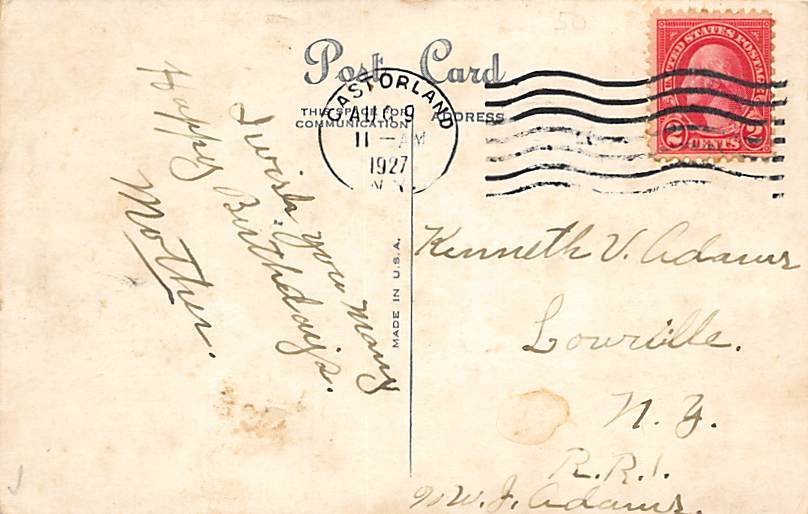 Post Card
THIS SPACE FOR
COMMUNICATION
ADDRESS
CASTORLAND
AUG 9
11 - AM
1927
N.Y.
UNITED STATES POSTAGE
2 CENTS 2
I wish you many
Happy Birthdays.
Mother.
MADE IN U.S.A.
Kenneth V. Adams
Lowville.
N. Y.
R.R.1.
% W. J. Adams.
50